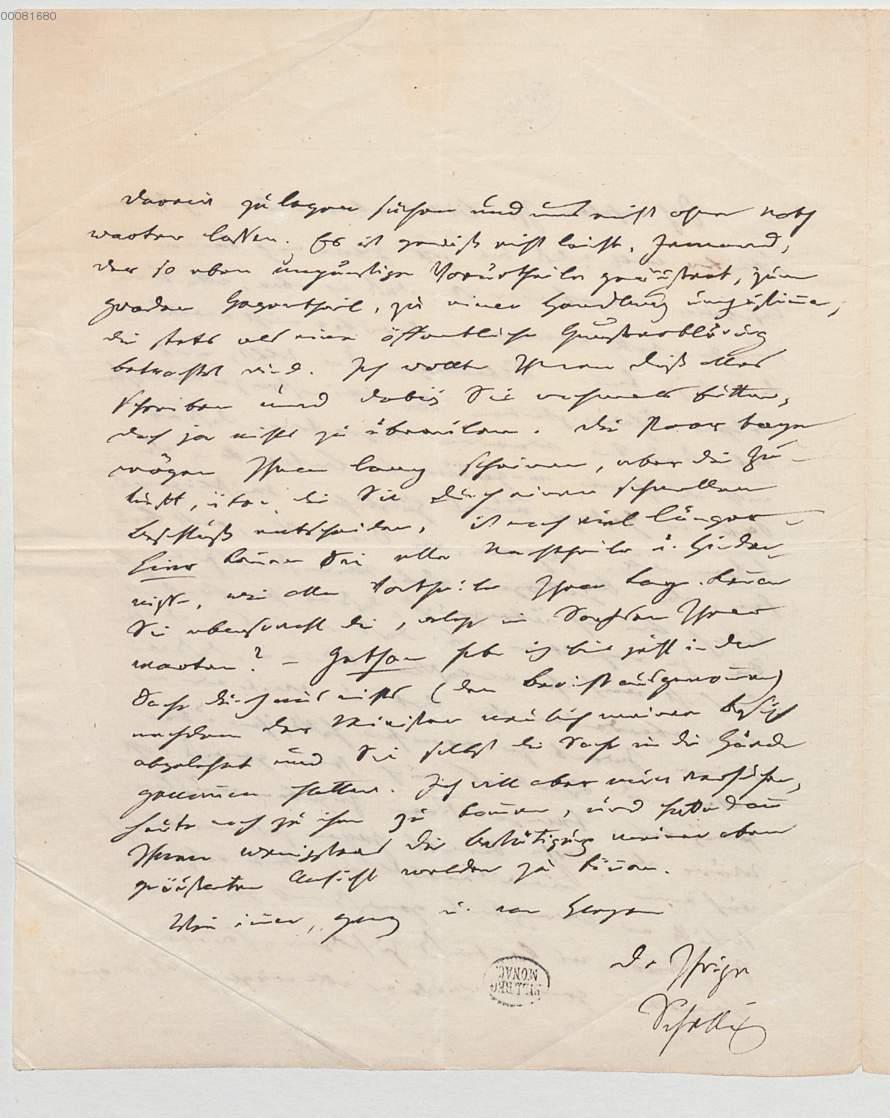 00081680
darein zu legen suchen und uns nicht ohne Noth
warten lassen. Es ist gewiß nicht leicht, Jemand,
der so eben ungünstige Vorurtheile geäußert, zum
geraden Gegentheil, zu einer Handlung umzustim̄en,
die stets als eine öffentliche Gunstbezeugung
betrachtet wird. Ich wollte Ihnen dieß alles
schreiben und dabei Sie nochmals bitten,
doch ja nichts zu übereilen. Die Paar Tage
mögen Ihnen lang scheinen, aber die Zu-
kunft, über die Sie durch einen schnellen
Beschluß entscheiden, ist noch viel länger.
Hier kennen Sie alle Nachtheile u. Hinder-
nisse, wie alle Vortheile Ihrer Lage. Kennen
Sie ebensowohl die, welche in Sachsen Ihrer
warten? – Gethan habe ich bis jetzt in der
Sache durchaus nichts (den Bericht ausgenom̄en)
nachdem der Minister neulich meinen Besuch
abgelehnt und Sie selbst die Sache in die Hände
genom̄en hatten. Ich will aber nun versuchen,
heute noch zu ihm zu kom̄en, und hoffe dann
Ihnen wenigstens die Bestätigung meiner oben
geäußerten Ansicht melden zu kön̄en.
Wie im̄er, ganz u. von Herzen
Der Ihrige
Schelling
BIBL. REG.
MONAC.